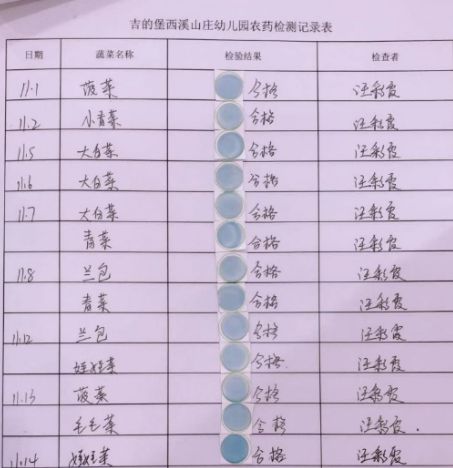 吉的堡西溪山庄幼儿园农药检测记录表
日期 蔬菜名称 检验结果 检查者
11.1 菠菜 合格 汪彩霞
11.2 小青菜 合格 汪彩霞
11.5 大白菜 合格 汪彩霞
11.6 大白菜 合格 汪彩霞
11.7 大白菜 合格 汪彩霞
青菜 合格 汪彩霞
11.8 兰包 合格 汪彩霞
青菜 合格 汪彩霞
11.12 兰包 合格 汪彩霞
娃娃菜 合格 汪彩霞
11.13 菠菜 合格 汪彩霞
毛毛菜 合格 汪彩霞.
11.14 娃娃菜 合格 汪彩霞